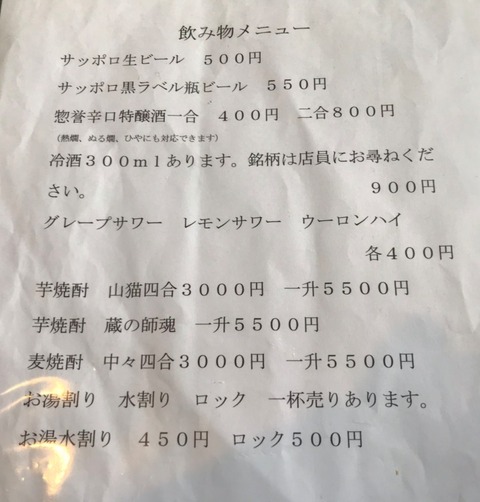 飲み物メニュー
サッポロ生ビール　５００円
サッポロ黒ラベル瓶ビール　５５０円
惣誉辛口特醸酒一合　４００円　二合８００円
（熱燗、ぬる燗、ひやにも対応できます）
冷酒３００ｍｌあります。銘柄は店員にお尋ねくだ
さい。　９００円
グレープサワー　レモンサワー　ウーロンハイ
各４００円
芋焼酎　山猫四合３０００円　一升５５００円
芋焼酎　蔵の師魂　一升５５００円
麦焼酎　中々四合３０００円　一升５５００円
お湯割り　水割り　ロック　一杯売りあります。
お湯水割り　４５０円　ロック５００円